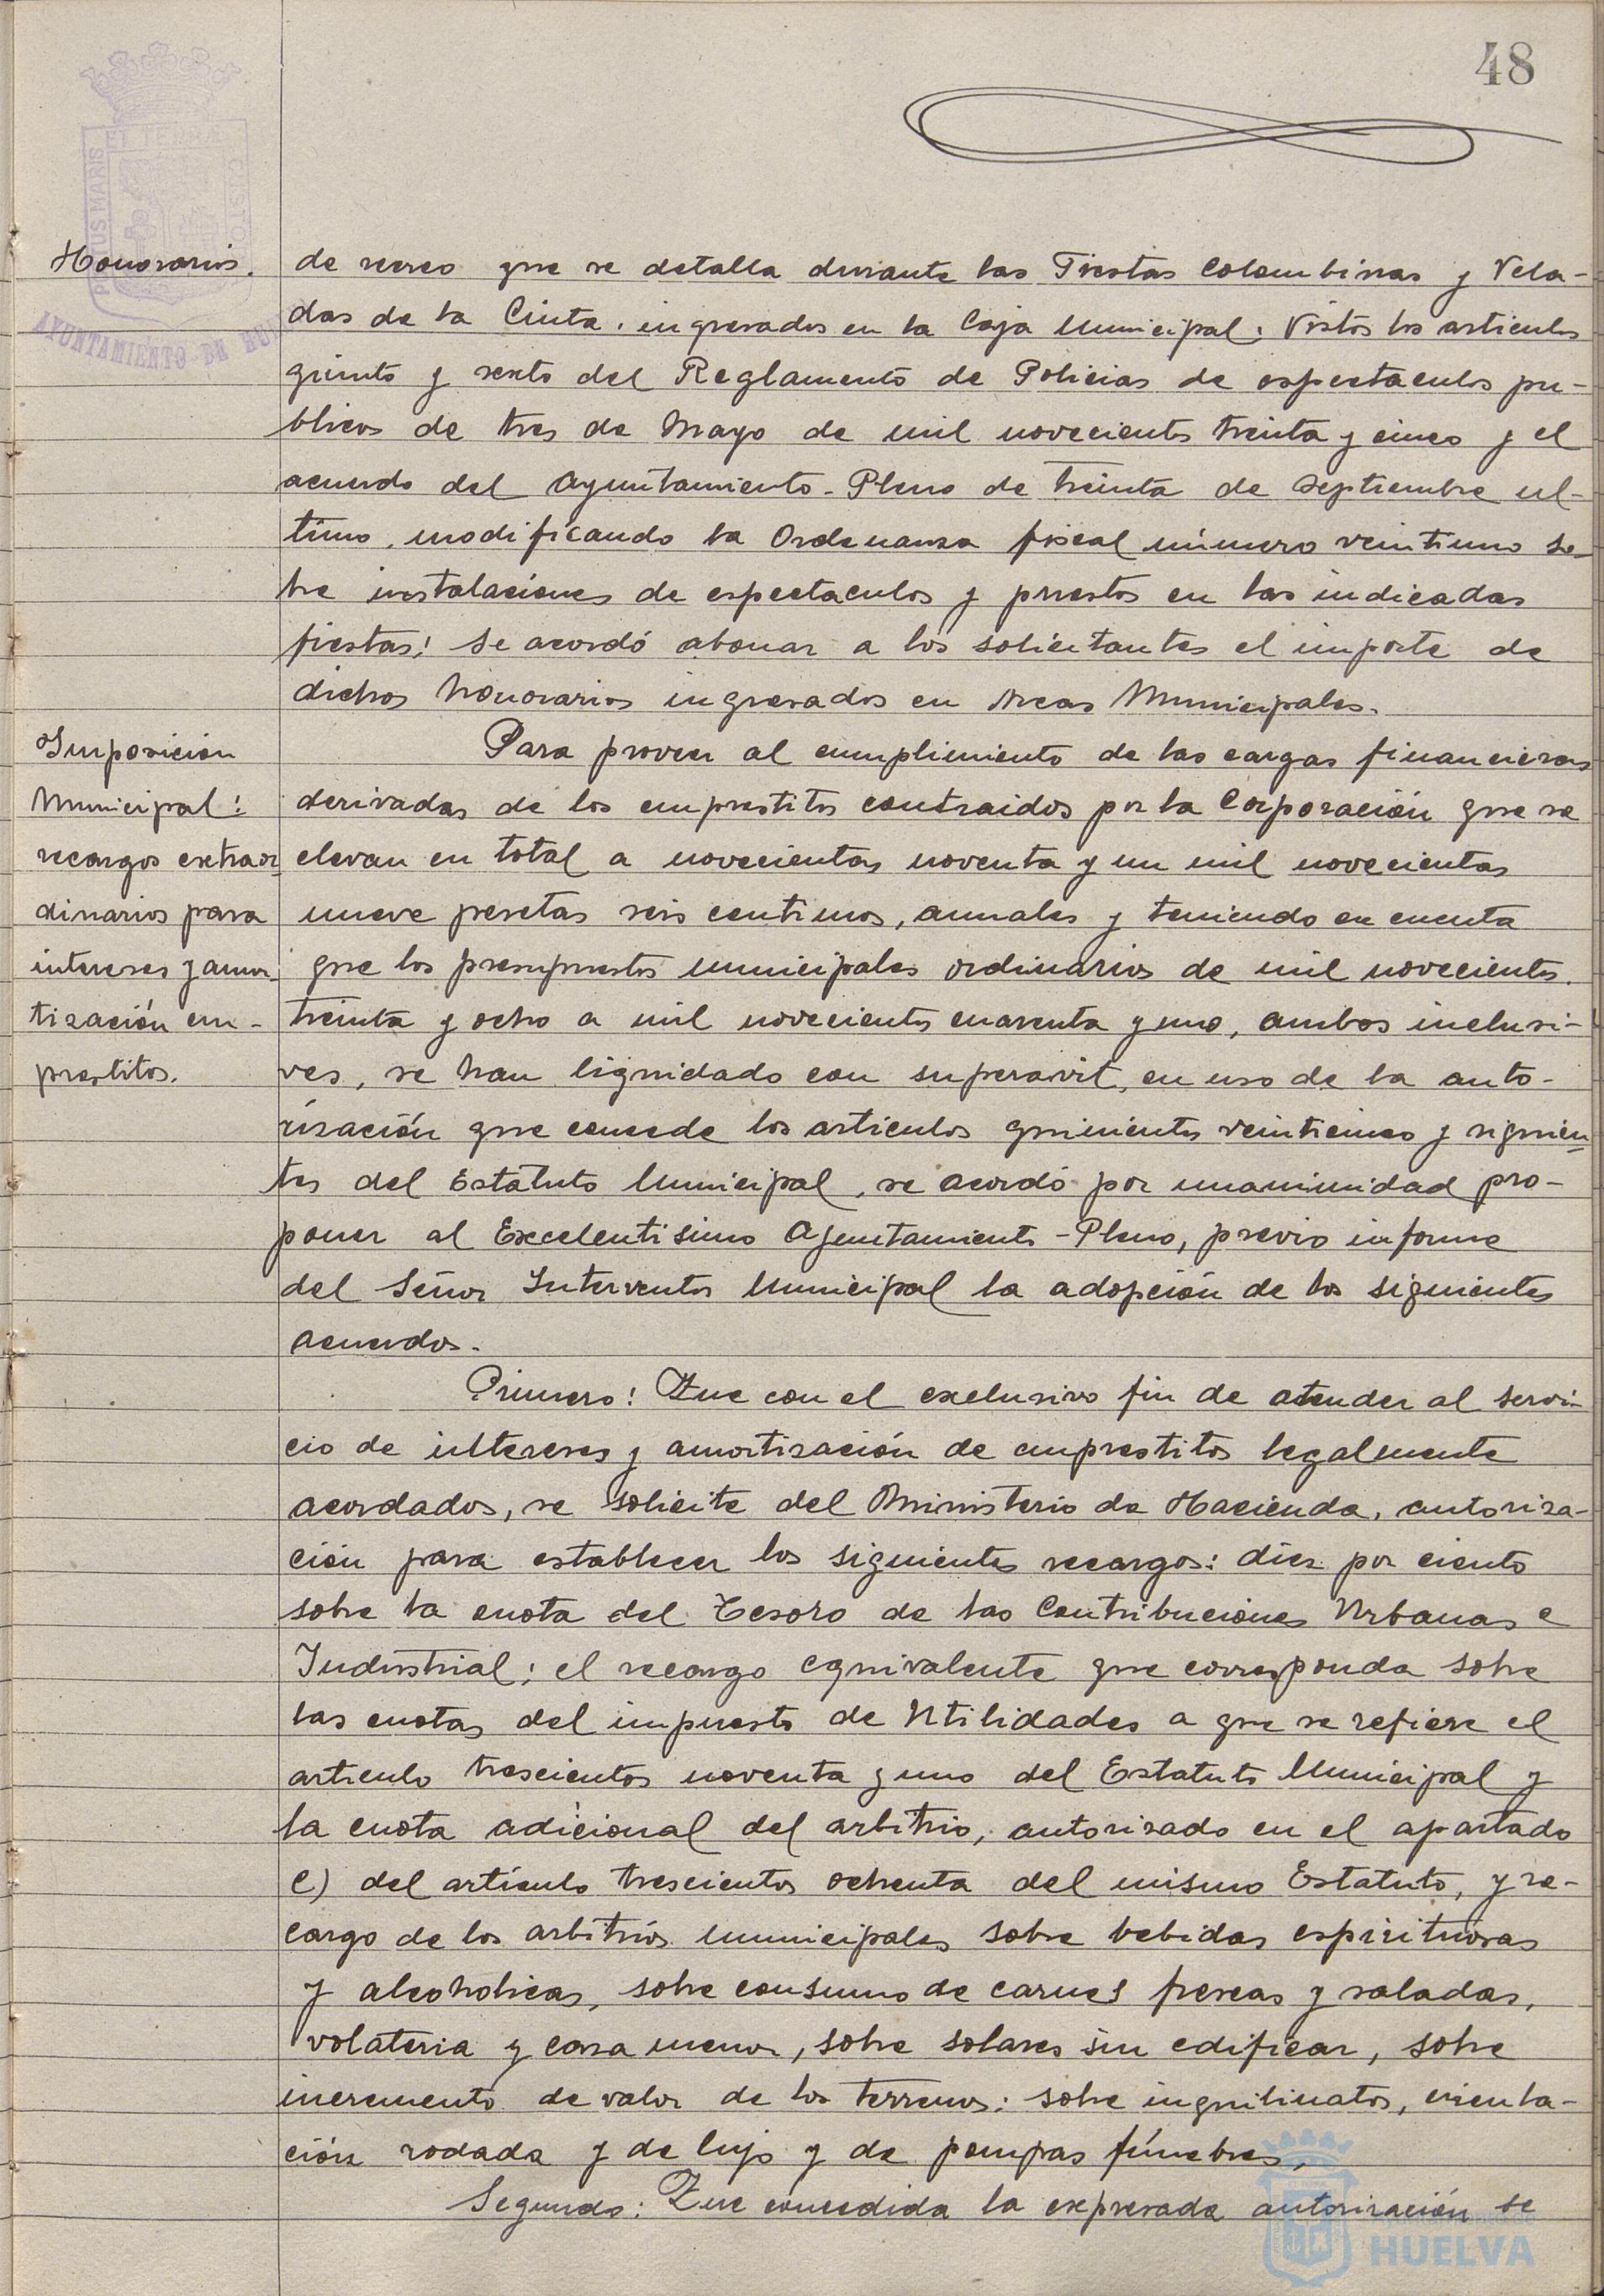 48
PORTUS MARIS ET TERRAE CUSTODIA
AYUNTAMIENTO DE HUELVA
Honorarios.
de recreo que se detalla durante las Fiestas Colombinas y Vela-
das de la Cinta, ingresados en la Caja Municipal: Vistos los articulos
quinto y sexto del Reglamento de Policias de espectaculos pu-
blicos de tres de Mayo de mil novecientos treinta y cinco y el
acuerdo del Ayuntamiento-Pleno de treinta de Septiembre ul-
timo, modificando la Ordenanza fiscal número veintiuno so-
bre instalaciones de espectaculos y puestos en las indicadas
fiestas: Se acordó abonar a los solicitantes el importe de
dichos honorarios ingresados en Arcas Municipales.
Imposicion
Municipal:
recargos extraor
dinarios para
intereses y amor
tización em-
prestitos.
Para proveer al cumplimiento de las cargas financieras
derivadas de los emprestitos contraidos por la Corporación que se
elevan en total a novecientas noventa y un mil novecientas
nueve pesetas seis centimos, anuales y teniendo en cuenta
que los presupuestos municipales ordinarios de mil novecientos
treinta y ocho a mil novecientos cuarenta y uno, ambos inclusi-
ves, se han liquidado con superavit, en uso de la auto-
rización que concede los articulos quinientos veinticinco y siguien-
tes del Estatuto Municipal, se acordó por unanimidad pro-
poner al Excelentisimo Ayuntamiento-Pleno, previo informe
del Señor Interventor Municipal la adopción de los siguientes
acuerdos.
Primero: Que con el exclusivo fin de atender al servi-
cio de intereses y amortización de emprestitos legalmente
acordados, se solicite del Ministerio de Hacienda, autoriza-
ción para establecer los siguientes recargos: diez por ciento
sobre la cuota del Tesoro de las Contribuciones Urbanas e
Industrial; el recargo equivalente que corresponda sobre
las cuotas del impuesto de Utilidades a que se refiere el
articulo trescientos noventa y uno del Estatuto Municipal y
la cuota adicional del arbitrio, autorizado en el apartado
C) del artículo trescientos ochenta del mismo Estatuto, y re-
cargo de los arbitrios municipales sobre bebidas espirituosas
y alcoholicas, sobre consumo de carnes frescas y saladas,
volateria y caza menor, sobre solares sin edificar, sobre
incremento de valor de los terrenos: sobre inquilinatos, circula-
ción rodada y de lujo y de pompas fúnebres.
Segundo: Que concedida la expresada autorización se
HUELVA